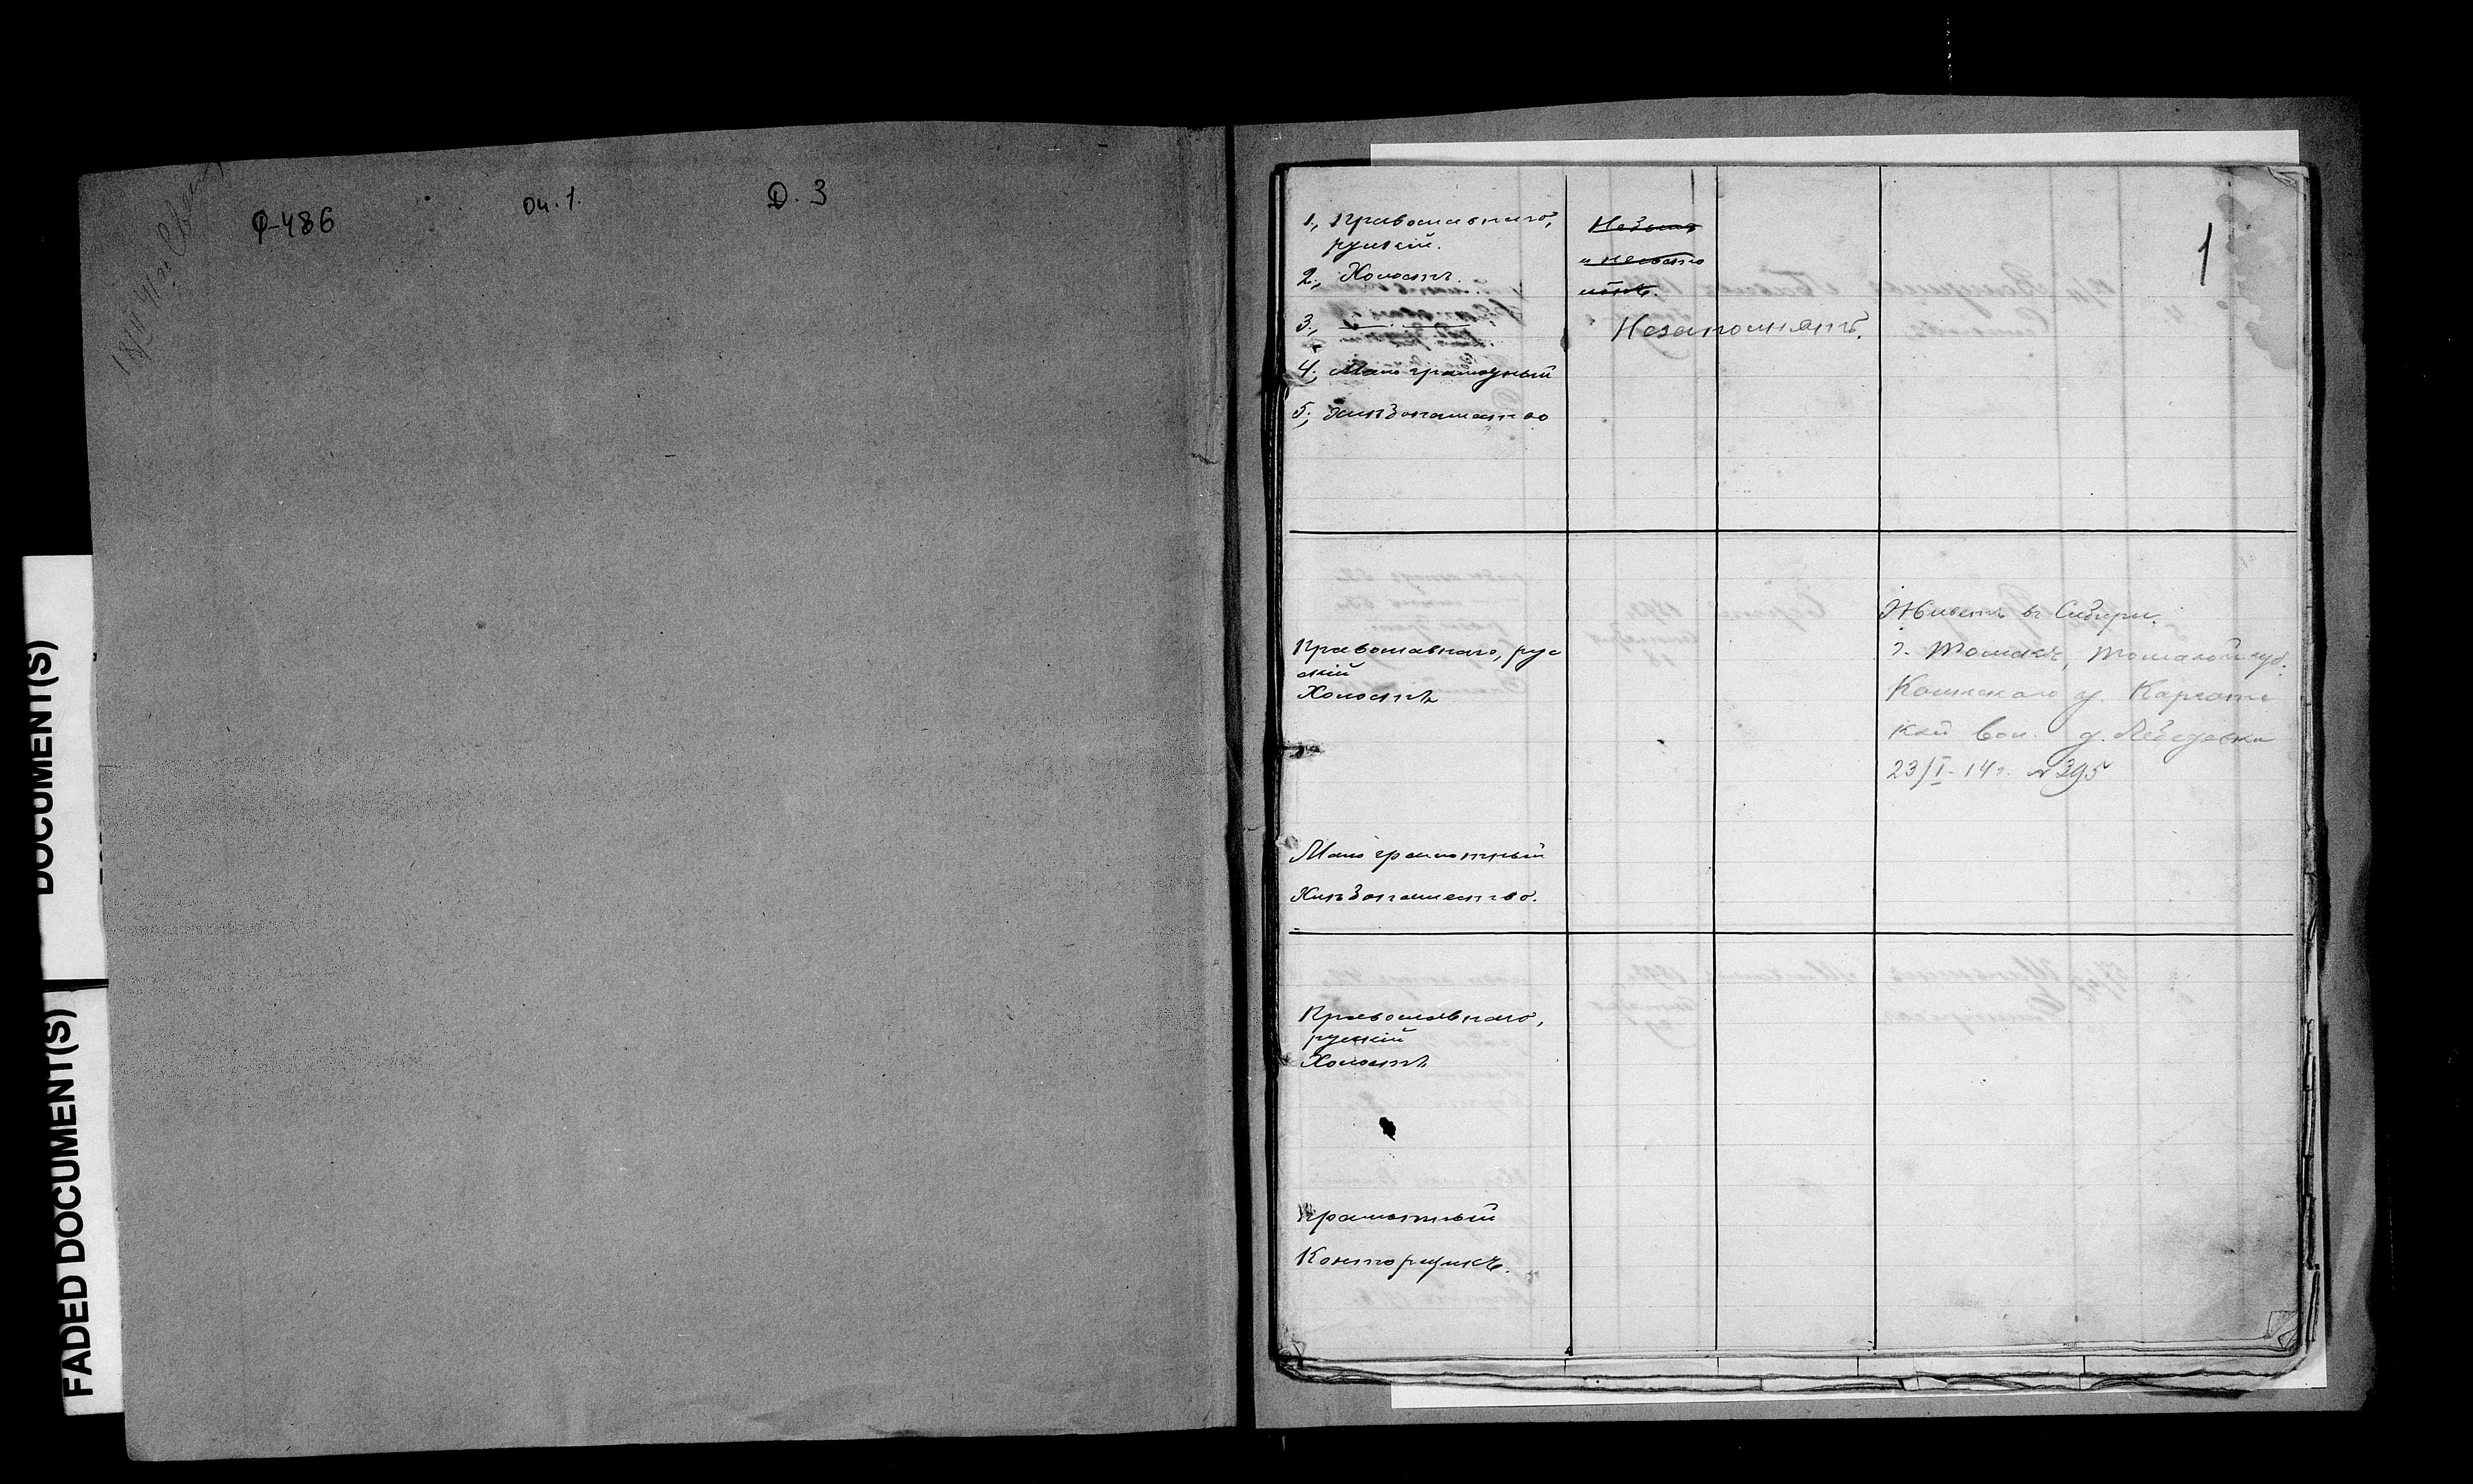 DOCUMENT(S)
FADED DOCUMENT(S)
Ф-486 Оп. 1. Д. 3
1
1., Православнаго,
русскій.
2., Холостъ.
3.,
4., Мало грамотный
5., Хлѣбопашество
Незапомнятъ.
Православнаго, рус
скій
Холостъ
Мало грамотный
Хлѣбопашество.
Живетъ въ Сибири.
г. Томскъ, Томской губ.
Каинскаго у. Каргатс
кой вол. д. Лебедевка
23/I-14 г. №395
Православнаго,
русскій
Холостъ
Грамотный
Конторщикъ.